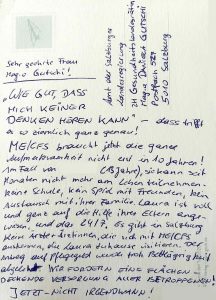 Sehr geehrte Frau
Mag.a Gutschi!
"WIE GUT, DASS
MICH KEINER
DENKEN HÖREN KANN" - das trifft
es so ziemlich ganz genau!
ME/CFS braucht jetzt die ganze
Aufmerksamkeit nicht erst in 10 Jahren!
Am Fall von (13 Jahre), sie kann seit
Monaten nicht mehr am Leben teilnehmen -
keine Schule, kein Spiel mit Freunden, kein
Austausch mit ihrer Familie. Laura ist voll
und ganz auf die Hilfe ihrer Eltern ange-
wiesen, und das 24/7. Es gibt in Salzburg
keine Ärzte die sich mit ME/CFS
auskennen, die Laura zuhause
auf Pflegegeld wurde trotz Bettlägrigkeit
abgelehnt. WIR FORDERN EINE FLÄCHEN-
DECKENDE VERSORGUNG ALLER BETROFFENEN!
JETZT - NICHT IRGENDWANN!
Amt der Salzburger
Landesregierung
zH Gesundheitslandesrätin
Mag.a Daniela Gutschi
Postfach 527
5010 Salzburg